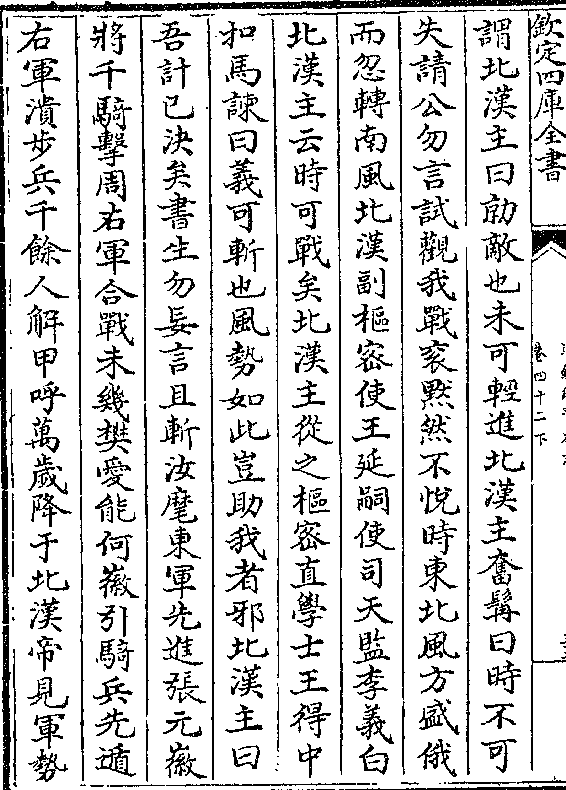 欽定四庫全書
卷四十二下
謂北漢主曰勍敵也未可輕進北漢主奮髯曰時不可
失請公勿言試觀我戰袞黙然不悦時東北風方盛俄
而忽轉南風北漢副樞密使王延嗣使司天監李義白
北漢主云時可戰矣北漢主從之樞密直學士王得中
扣馬諫曰義可斬也風勢如此豈助我者邪北漢主曰
吾計已決矣書生勿妄言且斬汝麾東軍先進張元徽
將千騎擊周右軍合戰未幾樊愛能何徽引騎兵先遁
右軍潰步兵千餘人解甲呼萬歲降于北漢帝見軍勢